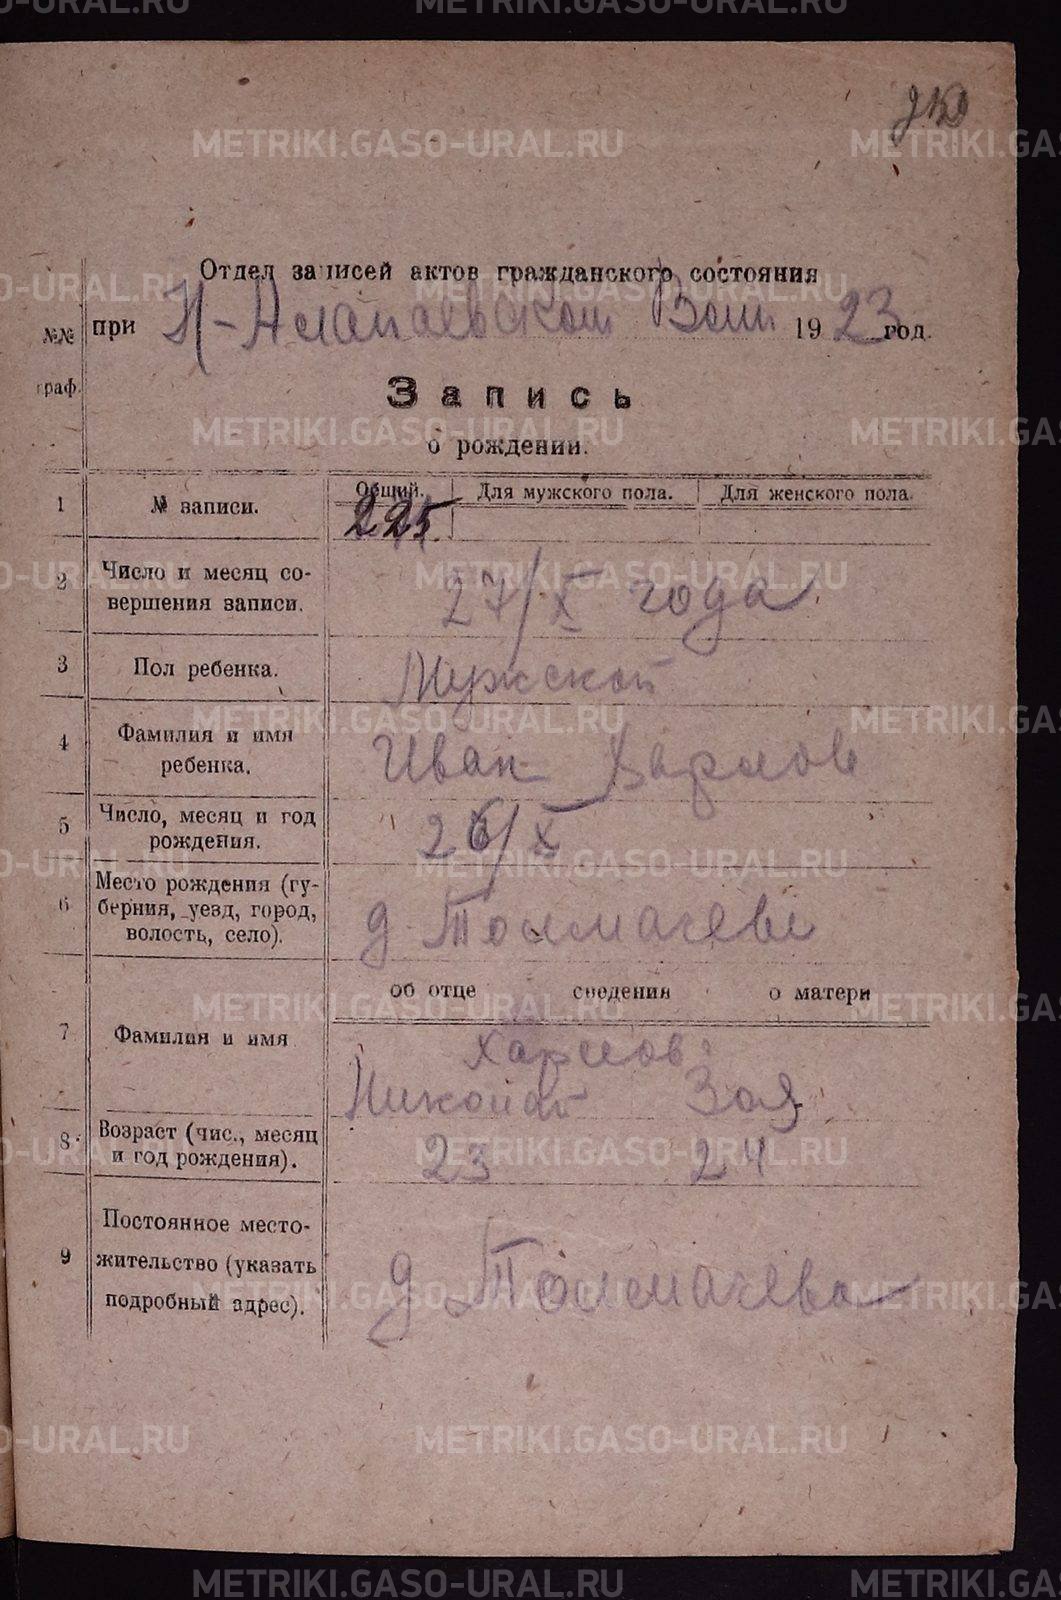 METRIKI.GASO-URAL.RU
Отдел записей актов гражданского состояния
при Н-Алапаевском Вол 1923 год.
№№ граф.
Запись
о рождении.
1 № записи. Общий. Для мужского пола. Для женского пола.
225.
2 Число и месяц совершения записи. 27/X года.
3 Пол ребенка. Мужской
4 Фамилия и имя ребенка. Иван Харлов
5 Число, месяц и год рождения. 26/X
6 Место рождения (губерния, уезд, город, волость, село). д. Толмачеве
об отце сведения о матери
7 Фамилия и имя Харлов
Николай Зоя
8 Возраст (чис., месяц и год рождения). 23 24
9 Постоянное место-
жительство (указать
подробный адрес). д Толмачева